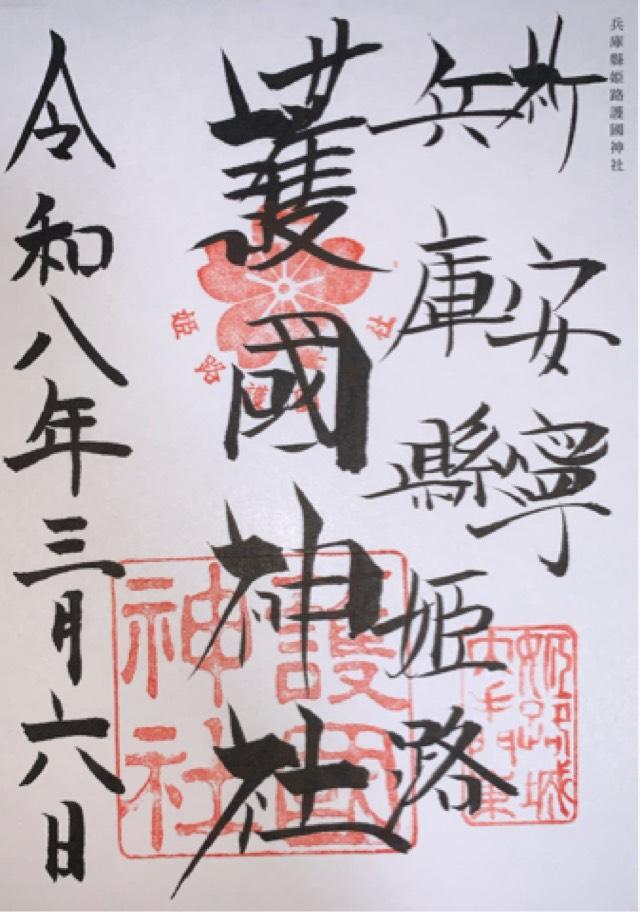 兵庫縣姫路護國神社
祈安寧
兵庫縣姫路
護國神社
令和八年三月六日
姫路護
護國
神社
姫路城